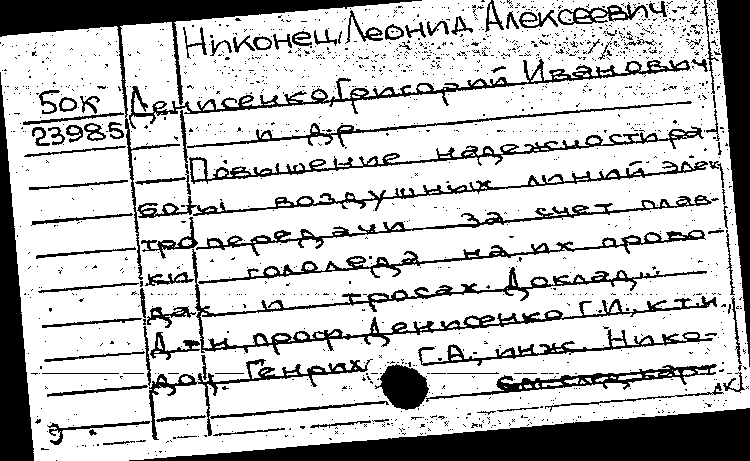 Никонец, Леонид Алексеевич
Бок Денисенко, Григорий Иванович
23985 и др
Повышение надежности ра-
боты воздушных линий элек
тропередачи за счет плав-
ки гололеда на их прово-
дах и тросах. Доклад...
Д.т.н., проф. Денисенко Г.И., к.т.н.,
доц. Генрих Г.А., инж. Нико-
см. след. карт.
АК
9